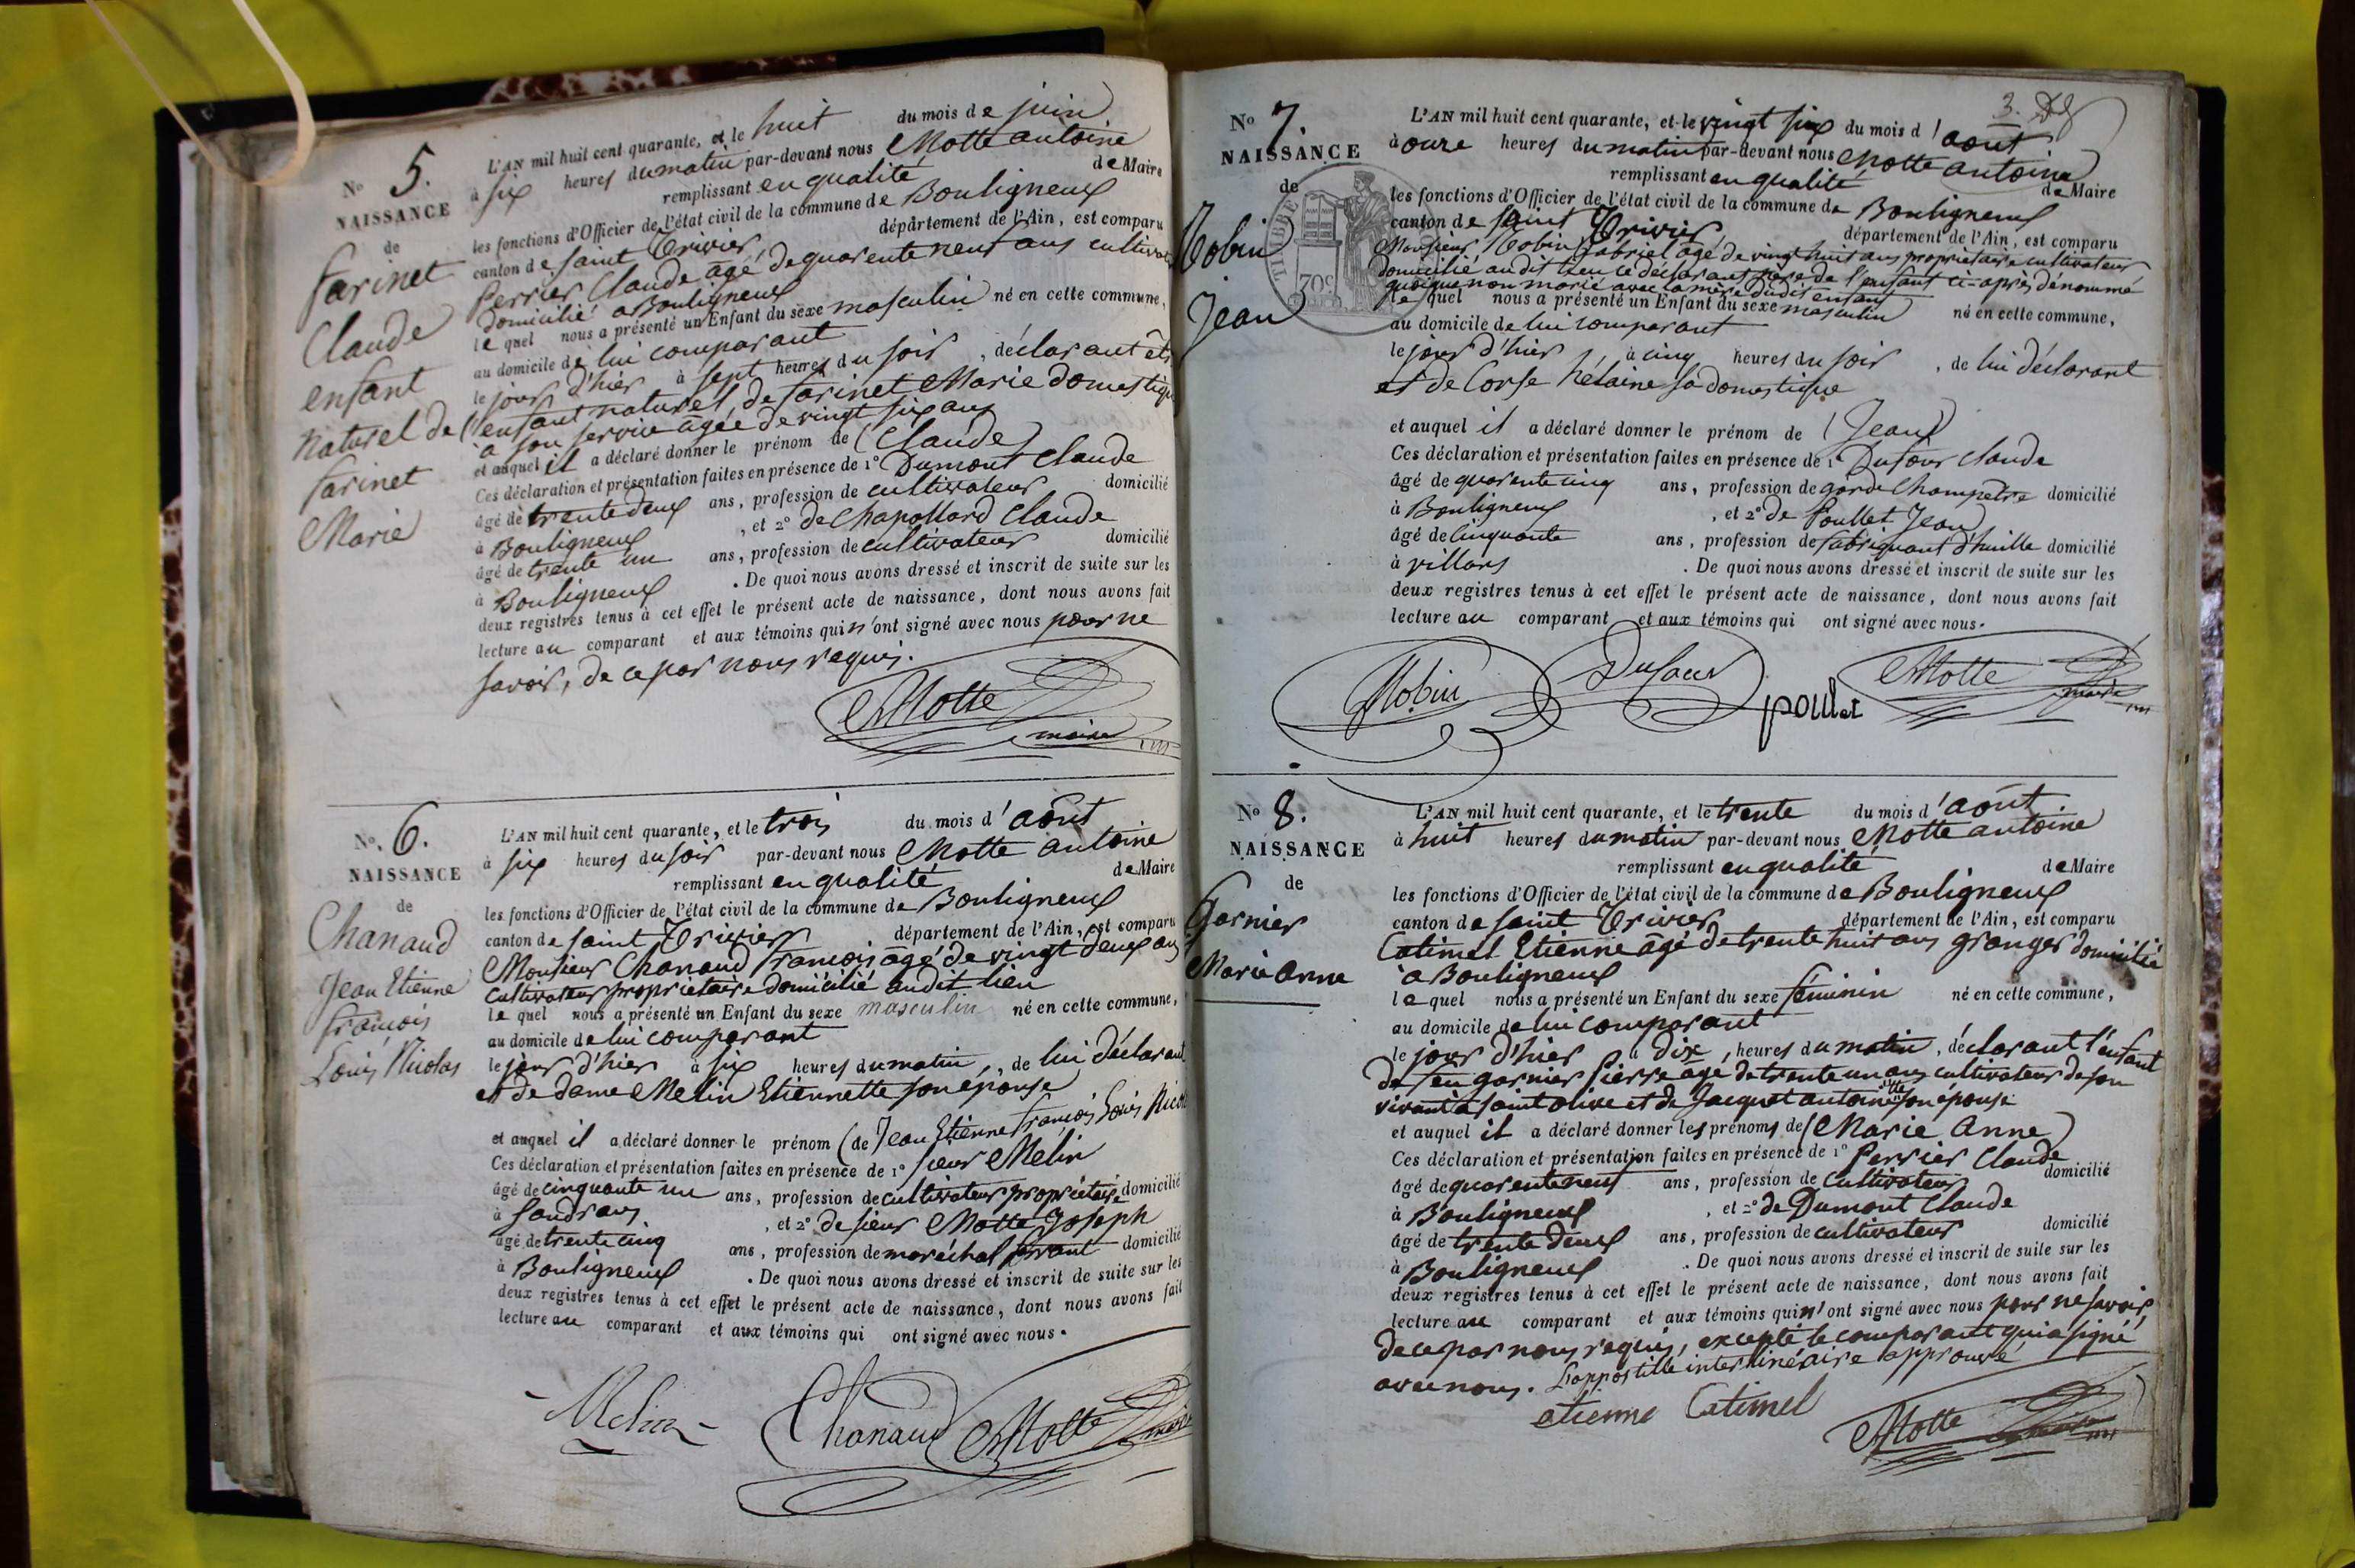 No 5.
NAISSANCE
de
farinet
Claude
enfant
naturel de
farinet
Marie
L'AN mil huit cent quarante, et le huit du mois de juin
à six heures du matin par-devant nous Motte antoine
remplissant en qualité de Maire
les fonctions d'Officier de l'état civil de la commune de Bouligneux
canton de saint Trivier département de l'Ain, est comparu
Perrier Claude âgé de quarente neuf ans cultivateur
domicilié a Bouligneux
le quel nous a présenté un Enfant du sexe masculin né en cette commune,
au domicile de lui comparant
le jour d'hier à sept heures du soir, déclarant être
l'enfant naturel de farinet Marie domestique
à son service âgée de vingt six ans
et auquel il a déclaré donner le prénom de (Claude)
Ces déclaration et présentation faites en présence de 1° Dumont Claude
âgé de trente deux ans, profession de cultivateur domicilié
à Bouligneux, et 2° de Chapollard Claude
âgé de trente un ans, profession de cultivateur domicilié
à Bouligneux. De quoi nous avons dressé et inscrit de suite sur les
deux registres tenus à cet effet le présent acte de naissance, dont nous avons fait
lecture au comparant et aux témoins qui n'ont signé avec nous pour ne
savoir, de ce par nous requis.
Motte
maire
No. 6.
NAISSANCE
de
Chanaud
Jean Etienne
françois
Louis Nicolas
L'AN mil huit cent quarante, et le trois du mois d'août
à six heures du soir par-devant nous Motte antoine
remplissant en qualité de Maire
les fonctions d'Officier de l'état civil de la commune de Bouligneux
canton de saint Trivier département de l'Ain, est comparu
Monsieur Chanaud françois âgé de vingt deux ans
cultivateur propriétaire domicilié audit lieu
le quel nous a présenté un Enfant du sexe masculin né en cette commune,
au domicile de lui comparant
le jour d'hier à six heures du matin, de lui déclarant
et de dame Melin Etiennette son épouse
et auquel il a déclaré donner le prénom (de Jean Etienne françois Louis Nicolas
Ces déclaration et présentation faites en présence de 1° sieur Melin
âgé de cinquante un ans, profession de cultivateur propriétaire domicilié
à Sandrans, et 2° de sieur Motte Joseph
âgé de trente cinq ans, profession de maréchal ferrant domicilié
à Bouligneux. De quoi nous avons dressé et inscrit de suite sur les
deux registres tenus à cet effet le présent acte de naissance, dont nous avons fait
lecture au comparant et aux témoins qui ont signé avec nous.
Melin Chanaud Motte maire
3.
No 7.
NAISSANCE
de
Robin
Jean
TIMBRE
70c
L'AN mil huit cent quarante, et le vingt six du mois d'août
à onze heures du matin par-devant nous Motte antoine
remplissant en qualité de Maire
les fonctions d'Officier de l'état civil de la commune de Bouligneux
canton de saint Trivier département de l'Ain, est comparu
Monsieur Robin Gabriel âgé de vingt huit ans propriétaire cultivateur
domicilié audit lieu ce déclarant père de l'enfant ci-après dénommé
quoique non marié avec la mère dudit enfant
le quel nous a présenté un Enfant du sexe masculin né en cette commune,
au domicile de lui comparant
le jour d'hier à cinq heures du soir, de lui déclarant
et de Corse hélaine sa domestique
et auquel il a déclaré donner le prénom de (Jean)
Ces déclaration et présentation faites en présence de 1° Dufour Claude
âgé de quarente cinq ans, profession de garde Champetre domicilié
à Bouligneux, et 2° de Poullet Jean
âgé de Cinquante ans, profession de fabriquant d'huille domicilié
à villars. De quoi nous avons dressé et inscrit de suite sur les
deux registres tenus à cet effet le présent acte de naissance, dont nous avons fait
lecture au comparant et aux témoins qui ont signé avec nous.
Robin Dufour poullet Motte maire
No 8.
NAISSANCE
de
Garnier
Marie Anne
L'AN mil huit cent quarante, et le trente du mois d'août
à huit heures du matin par-devant nous Motte antoine
remplissant en qualité de Maire
les fonctions d'Officier de l'état civil de la commune de Bouligneux
canton de saint Trivier département de l'Ain, est comparu
Catimel Etienne âgé de trente huit ans granger domicilié
à Bouligneux
le quel nous a présenté un Enfant du sexe féminin né en cette commune,
au domicile de lui comparant
le jour d'hier à dix heures du matin, déclarant l'enfant
de feu garnier Pierre agé de trente un ans cultivateur de son
vivant à saint olive et de Jacquet antoinette son épouse
et auquel il a déclaré donner les prénoms de (Marie Anne)
Ces déclaration et présentation faites en présence de 1° Perrier Claude
âgé de quarente neuf ans, profession de Cultivateur domicilié
à Bouligneux, et 2° de Dumont Claude
âgé de trente deux ans, profession de cultivateur domicilié
à Bouligneux. De quoi nous avons dressé et inscrit de suite sur les
deux registres tenus à cet effet le présent acte de naissance, dont nous avons fait
lecture au comparant et aux témoins qui n'ont signé avec nous pour ne savoir,
de ce par nous requis, excepté le comparant qui a signé
avec nous. L'appostille interlinéaire approuvé
etienne Catimel
Motte maire